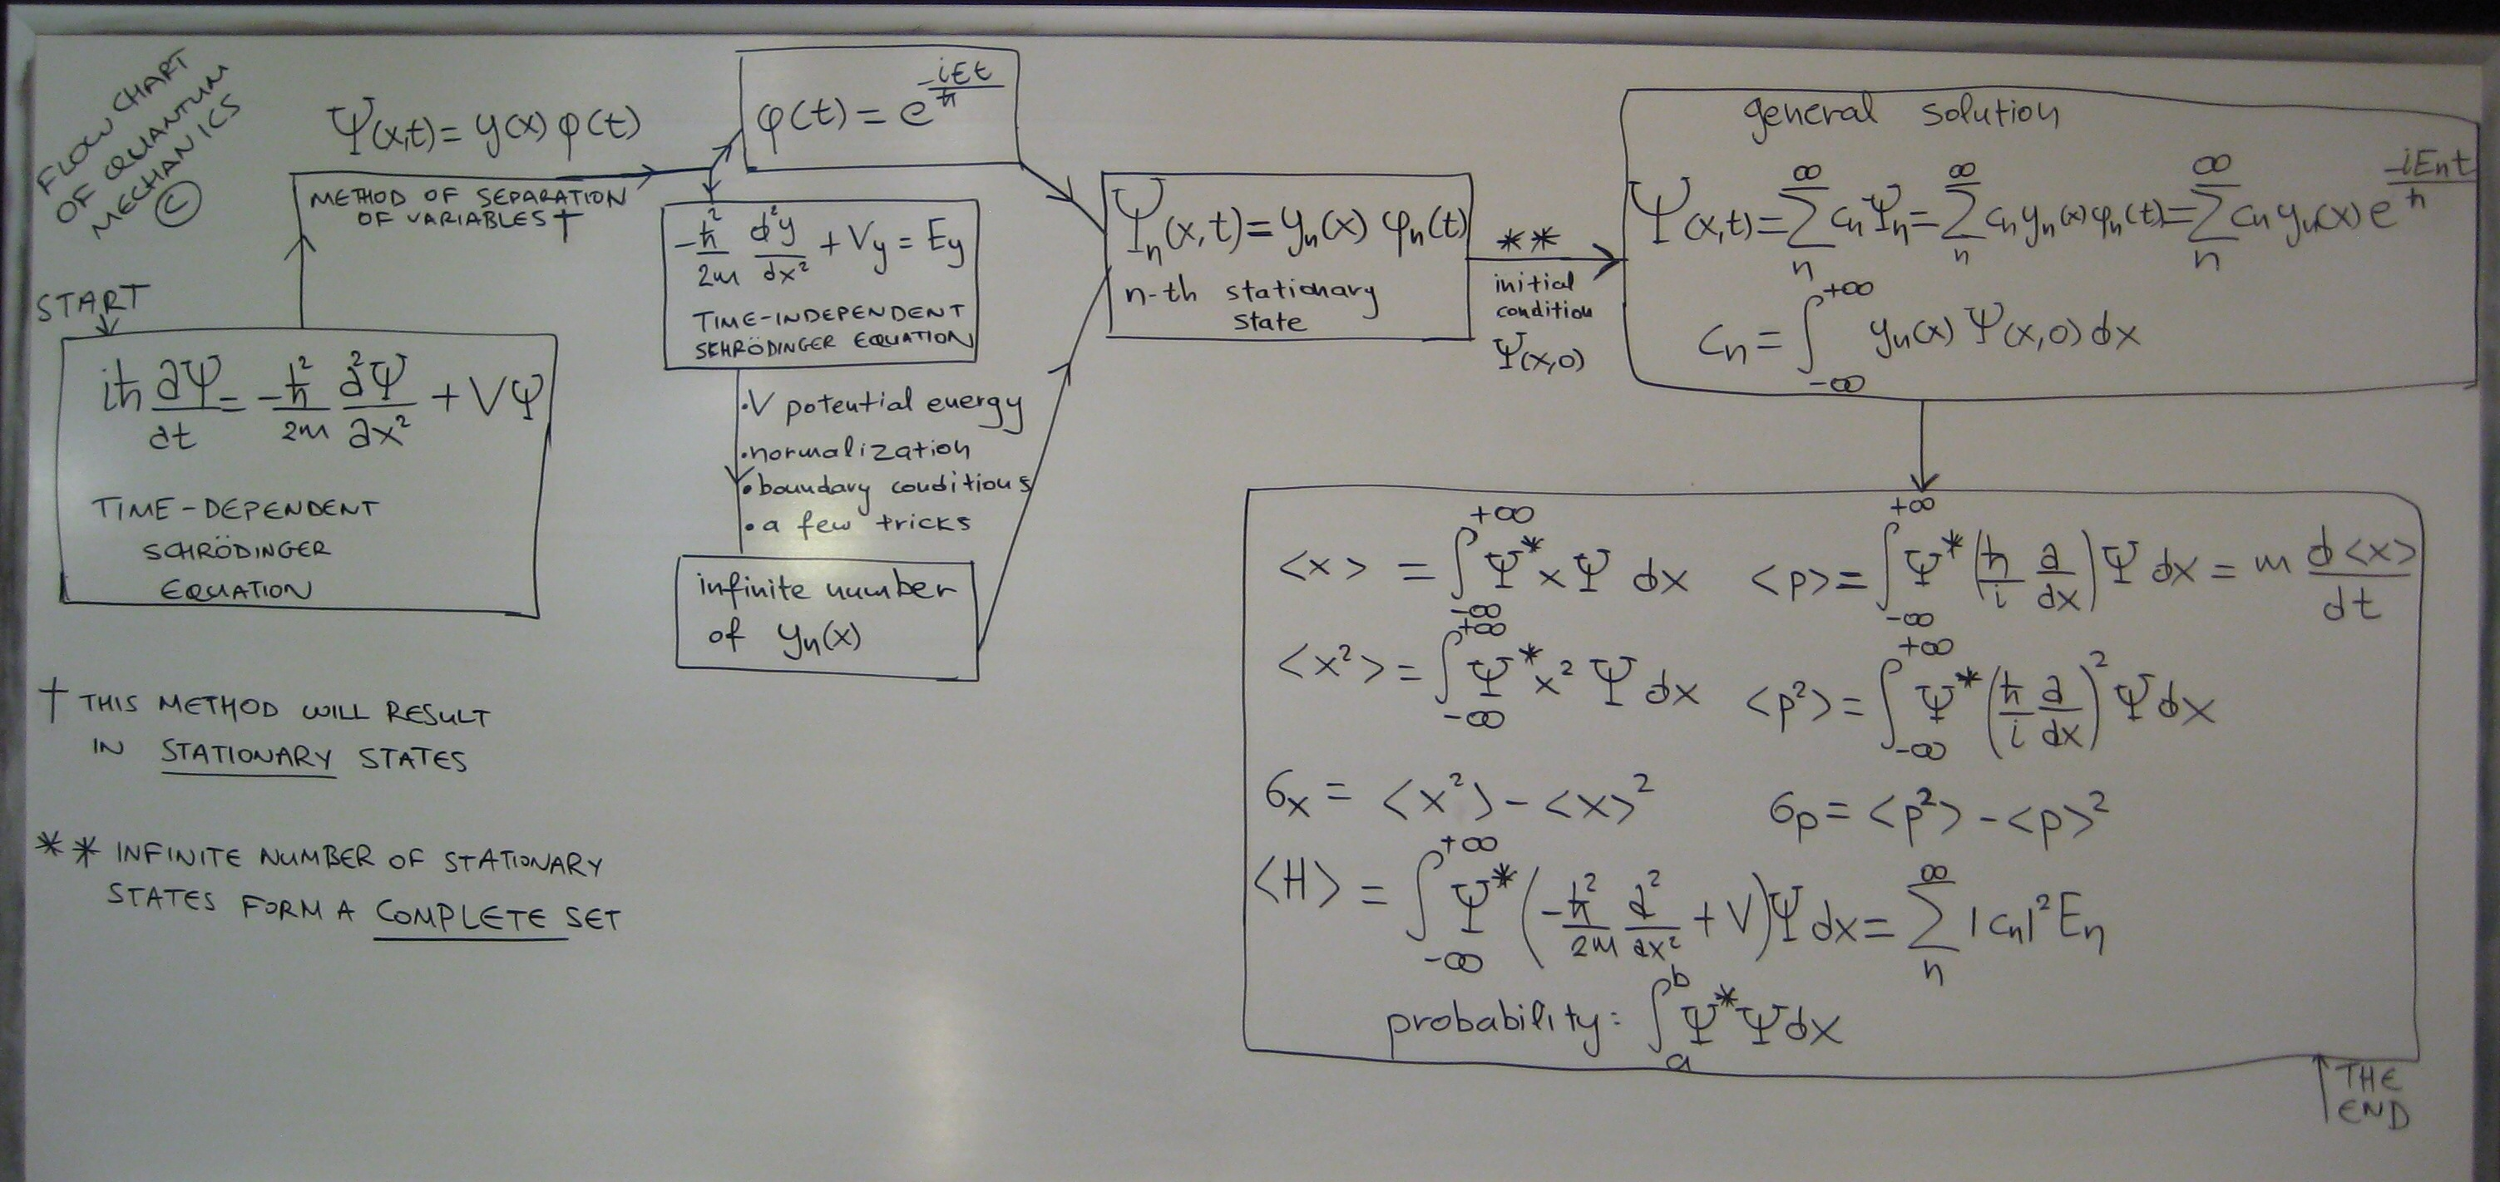 FLOW CHART
OF QUANTUM
MECHANICS
©
Ψ(x,t) = y(x) φ(t)
METHOD OF SEPARATION
OF VARIABLES †
START
iħ ∂Ψ/∂t = -ħ²/2m ∂²Ψ/∂x² + VΨ
TIME-DEPENDENT
SCHRÖDINGER
EQUATION
φ(t) = e^(-iEt/ħ)
-ħ²/2m d²y/dx² + Vy = Ey
TIME-INDEPENDENT
SCHRÖDINGER EQUATION
• V potential energy
• normalization
• boundary conditions
• a few tricks
infinite number
of yn(x)
Ψn(x,t) = yn(x) φn(t)
n-th stationary
state
**
initial
condition
Ψ(x,0)
general solution
Ψ(x,t) = ∑_n^∞ cn Ψn = ∑_n^∞ cn yn(x) φn(t) = ∑_n^∞ cn yn(x) e^(-iEnt/ħ)
cn = ∫_-∞^+∞ yn(x) Ψ(x,0) dx
<x> = ∫_-∞^+∞ Ψ* x Ψ dx <p> = ∫_-∞^+∞ Ψ* (ħ/i ∂/∂x) Ψ dx = m d<x>/dt
<x²> = ∫_-∞^+∞ Ψ* x² Ψ dx <p²> = ∫_-∞^+∞ Ψ* (ħ/i ∂/∂x)² Ψ dx
σx = <x²> - <x>² σp = <p²> - <p>²
<H> = ∫_-∞^+∞ Ψ* (-ħ²/2m ∂²/∂x² + V) Ψ dx = ∑_n^∞ |cn|² En
probability: ∫_a^b Ψ* Ψ dx
THE
END
† THIS METHOD WILL RESULT
IN STATIONARY STATES
** INFINITE NUMBER OF STATIONARY
STATES FORM A COMPLETE SET